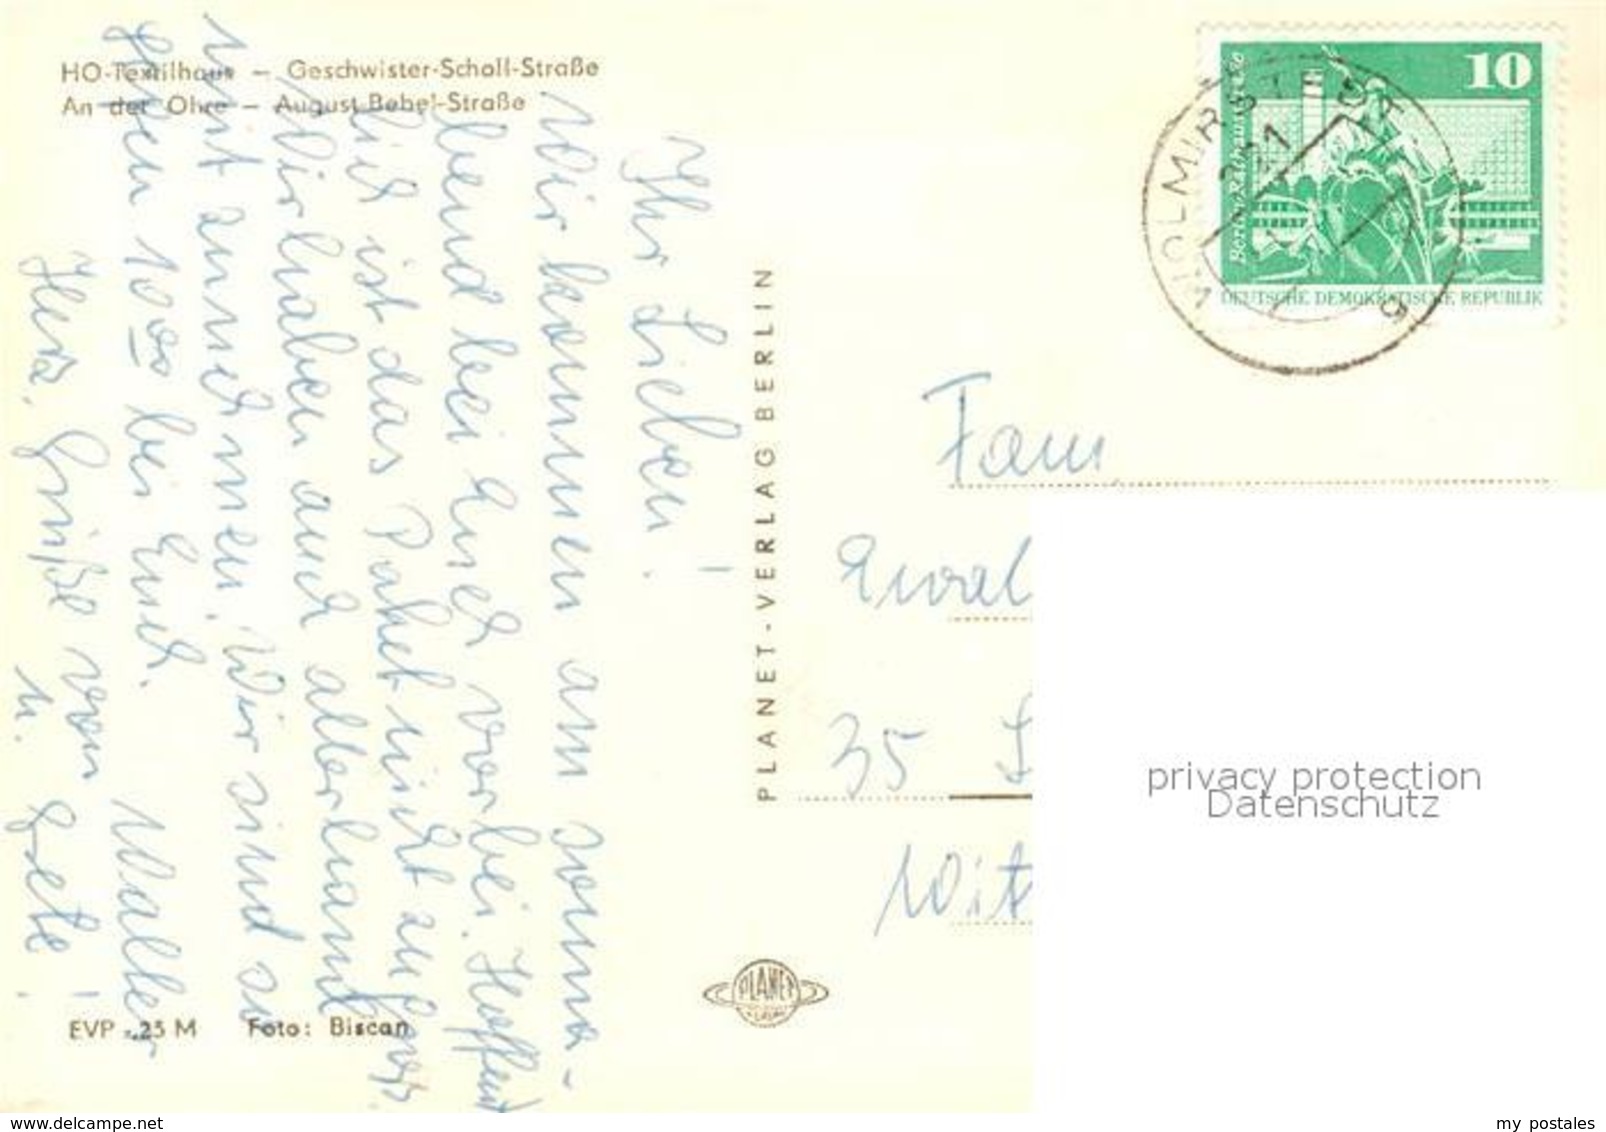 HO-Textilhaus – Geschwister-Scholl-Straße
An der Ohre – August-Bebel-Straße
Ihr Lieben!
Wir kommen am Sonna-
bend bei Euch vorbei. Hoffent
lich ist das Paket nicht zu groß.
Wir haben auch allerhand
mit zunehmen. Wir sind so
gegen 10 00 bei Euch.
Herz. Grüße von Walter
u. Grete!
EVP -,25 M Foto: Biscan
PLANET-VERLAG BERLIN
PLANET
10
DEUTSCHE DEMOKRATISCHE REPUBLIK
WOLMIRSTEDT
321
g
Fam.
Ewal
35
Wit
privacy protection
Datenschutz
www.delcampe.net
my postales